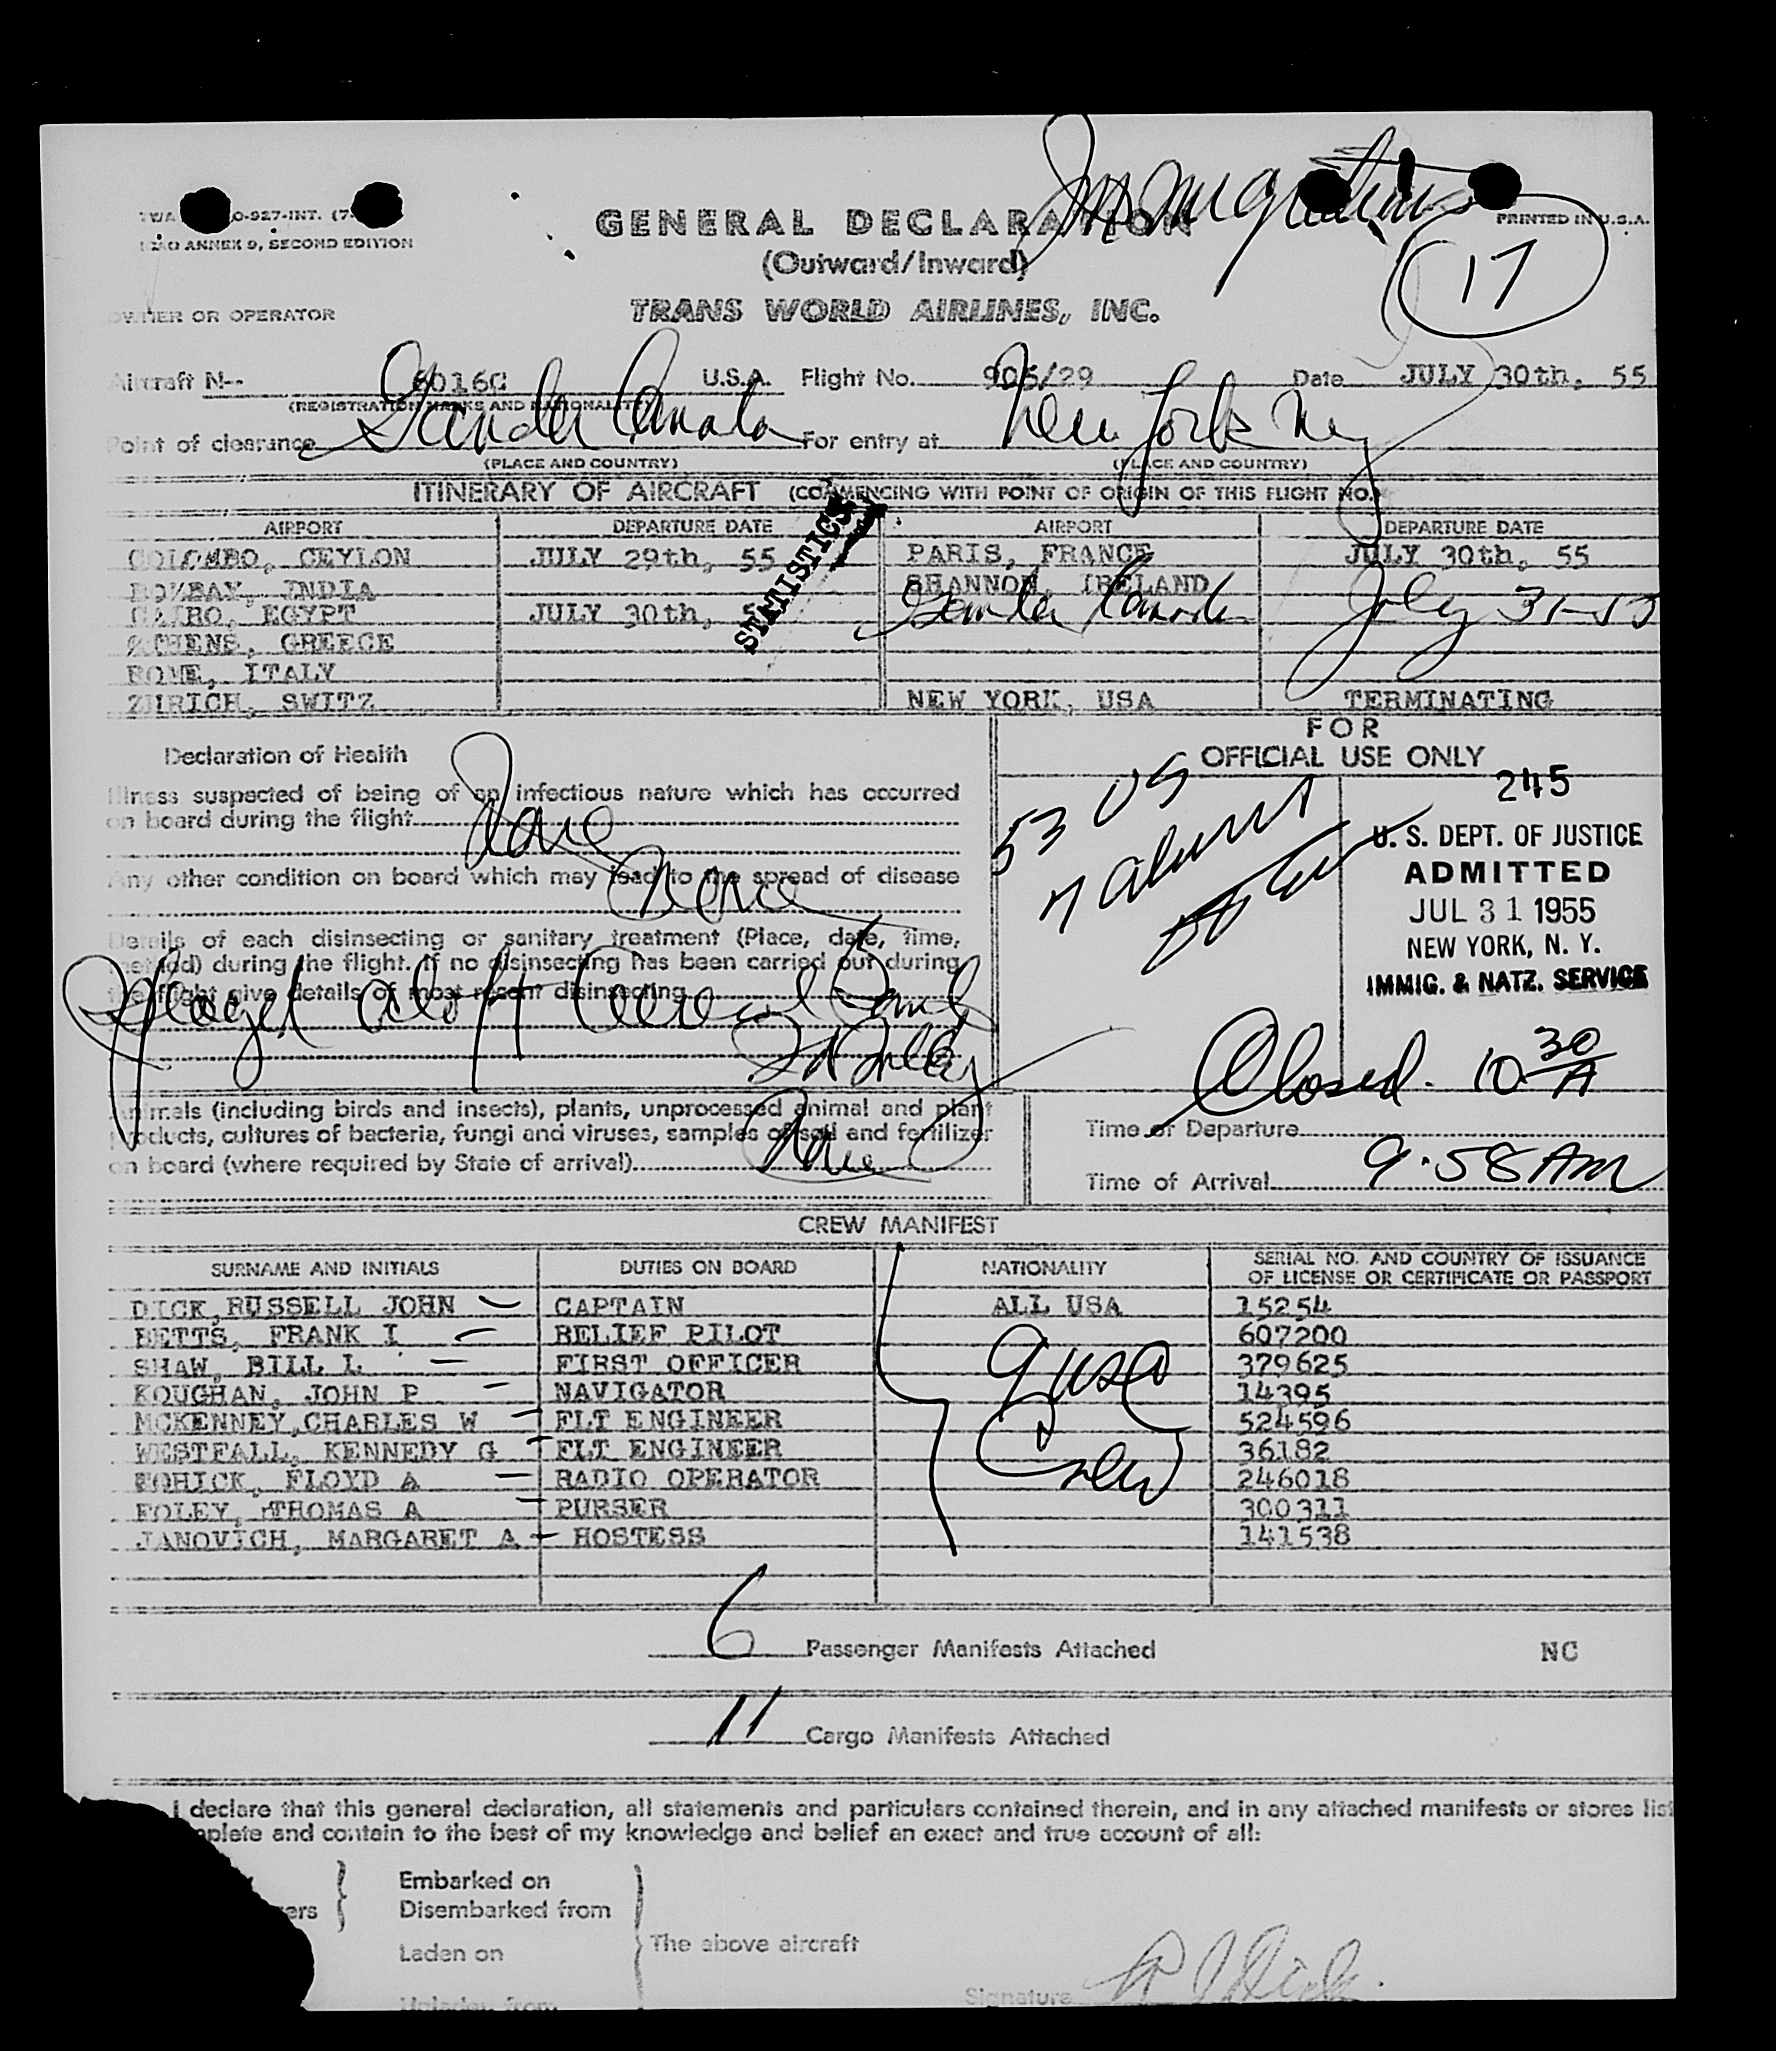 Immigration
TWA O-927-INT. (7-
ICAO ANNEX 9, SECOND EDITION
GENERAL DECLARATION
PRINTED IN U.S.A.
(Outward/Inward)
17
OWNER OR OPERATOR
TRANS WORLD AIRLINES, INC.
Aircraft N-- 6016C U.S.A. Flight No. 905/29 Date JULY 30th, 55
(REGISTRATION MARKS AND NATIONALITY)
Point of clearance Gander Canada For entry at New York Ny
(PLACE AND COUNTRY) (PLACE AND COUNTRY)
ITINERARY OF AIRCRAFT (COMMENCING WITH POINT OF ORIGIN OF THIS FLIGHT NO.)
AIRPORT DEPARTURE DATE AIRPORT DEPARTURE DATE
COLOMBO, CEYLON JULY 29th, 55 PARIS, FRANCE JULY 30th, 55
BOMBAY, INDIA SHANNON, IRELAND
CAIRO, EGYPT JULY 30th, Gander Canada July 31-55
STATISTICS
ATHENS, GREECE
ROME, ITALY
ZURICH, SWITZ NEW YORK, USA TERMINATING
Declaration of Health
FOR
OFFICIAL USE ONLY
Illness suspected of being of an infectious nature which has occurred
on board during the flight None
Any other condition on board which may lead to the spread of disease
None
Details of each disinsecting or sanitary treatment (Place, date, time,
method) during the flight. If no disinsecting has been carried out during
the flight give details of most recent disinsecting
aloft Aerosol Bomb
53 US
7 aliens
245
U. S. DEPT. OF JUSTICE
ADMITTED
JUL 31 1955
NEW YORK, N. Y.
IMMIG. & NATZ. SERVICE
Closed 10 30/A
Animals (including birds and insects), plants, unprocessed animal and plant
products, cultures of bacteria, fungi and viruses, samples of soil and fertilizer
on board (where required by State of arrival) None
Time of Departure
Time of Arrival 9.58 AM
CREW MANIFEST
SURNAME AND INITIALS DUTIES ON BOARD NATIONALITY SERIAL NO. AND COUNTRY OF ISSUANCE
OF LICENSE OR CERTIFICATE OR PASSPORT
DICK, RUSSELL JOHN CAPTAIN ALL USA 15254
BETTS, FRANK I RELIEF PILOT 607200
SHAW, BILL L FIRST OFFICER 379625
KOUGHAN, JOHN P NAVIGATOR 14395
MCKENNEY, CHARLES W FLT ENGINEER 524596
WESTFALL, KENNEDY G FLT ENGINEER 36182
FLOYD A RADIO OPERATOR 246018
FOLEY, THOMAS A PURSER 300311
JANOVICH, MARGARET A HOSTESS 141538
9 USA
Crew
6 Passenger Manifests Attached NC
11 Cargo Manifests Attached
I declare that this general declaration, all statements and particulars contained therein, and in any attached manifests or stores list
plete and contain to the best of my knowledge and belief an exact and true account of all:
Embarked on
Disembarked from
Laden on
The above aircraft
Unladen from
Signature R J Dick